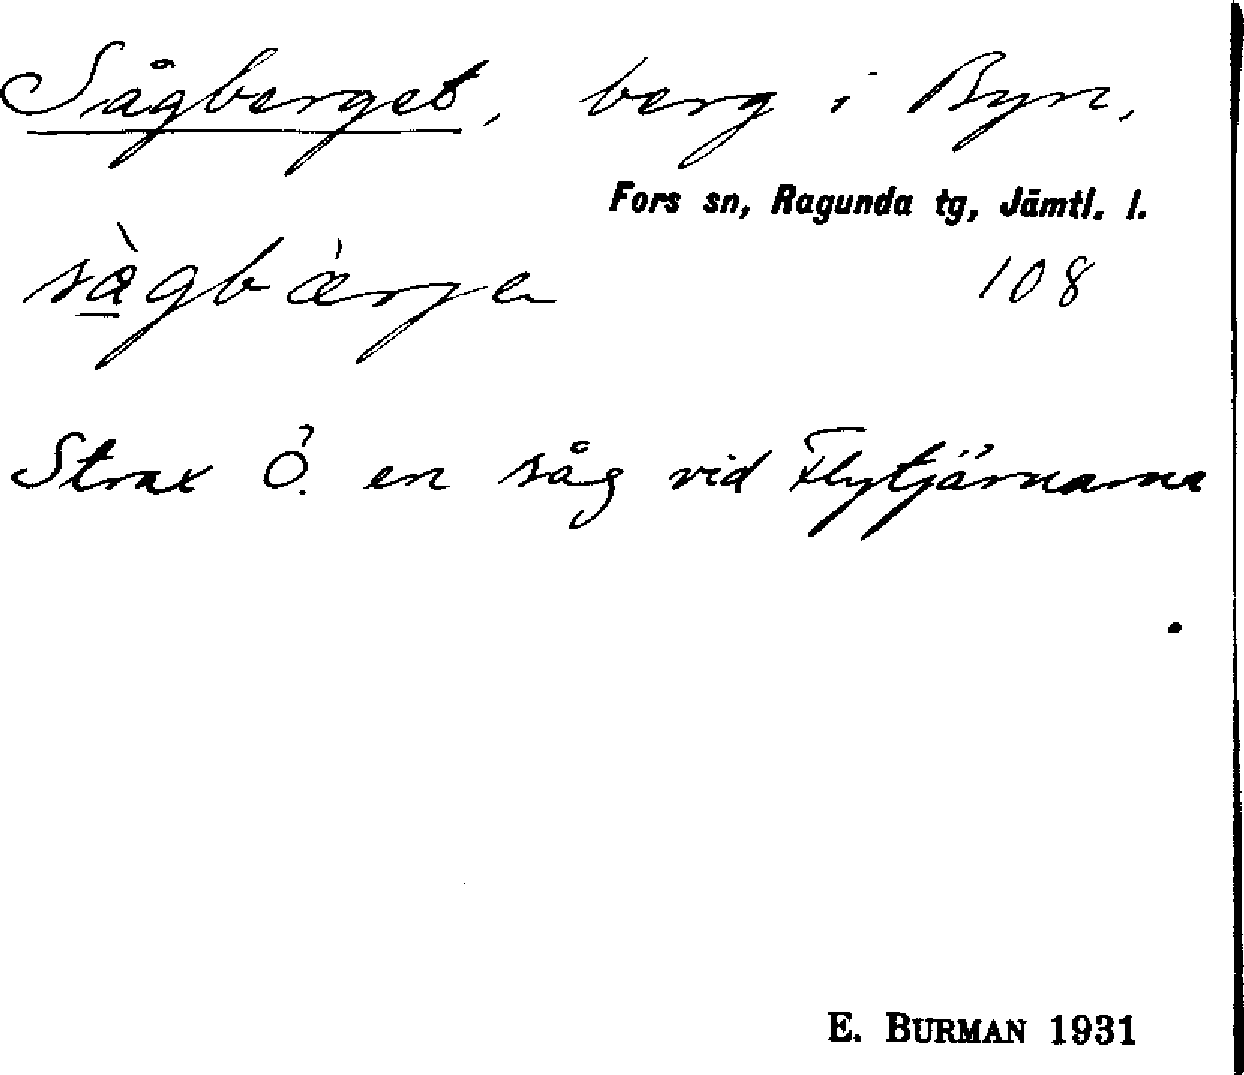 Sågberget, berg i Byn.
Fors sn, Ragunda tg, Jämtl. l.
sàgbærjen 108
Strax Ö. en såg vid Flytjärnarna
E. BURMAN 1931